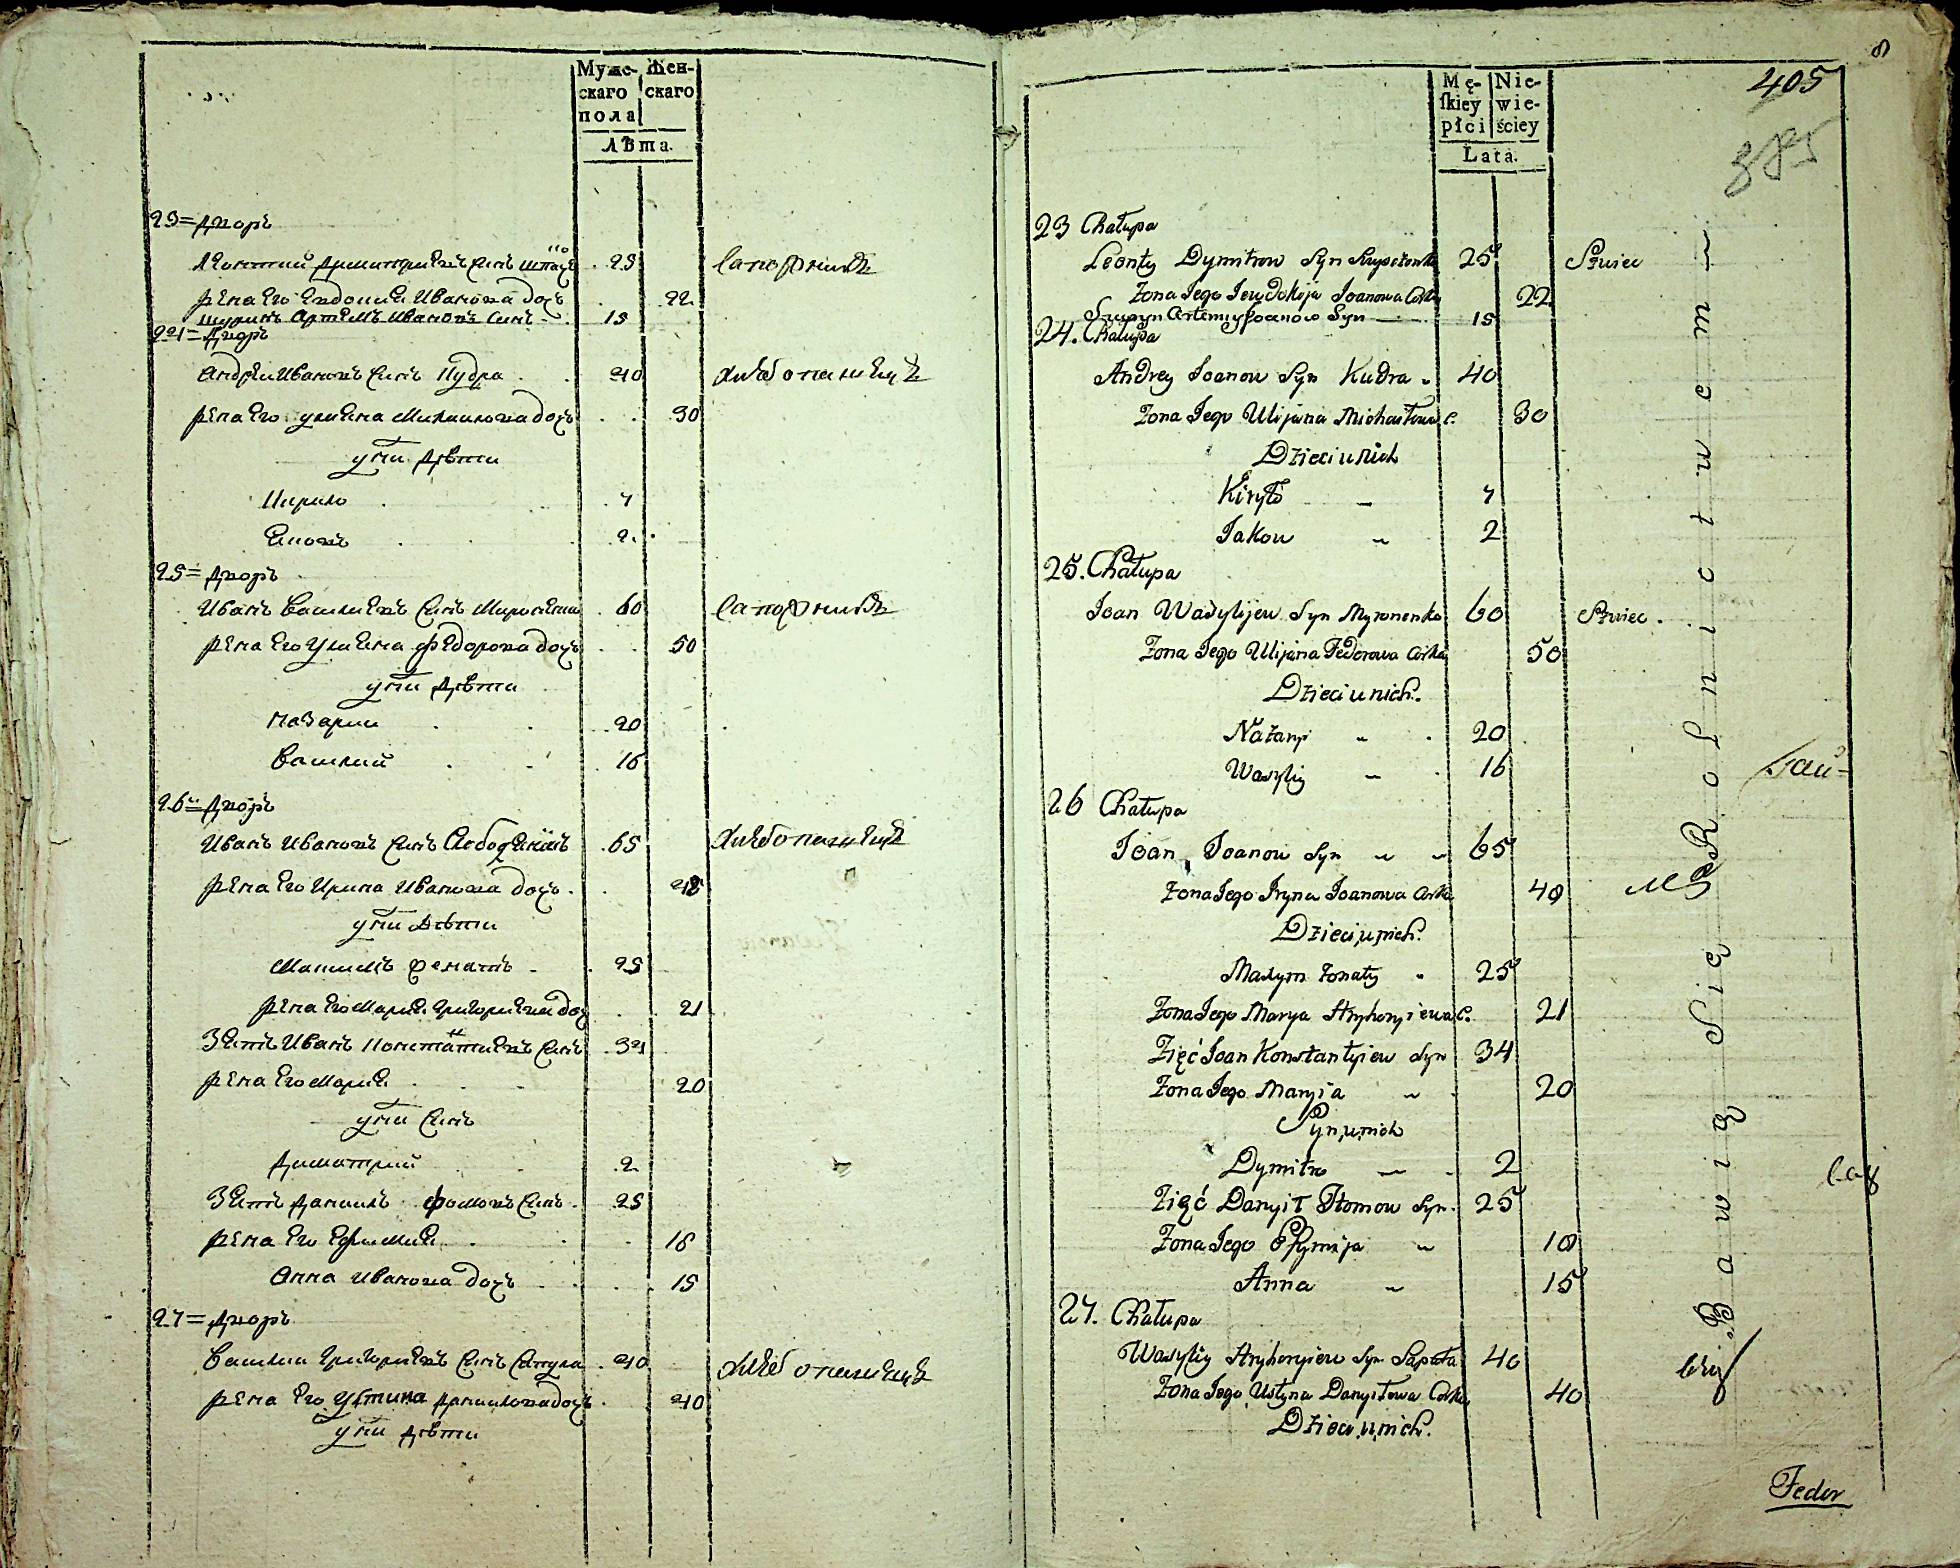 Муже-
скаго
пола
Жен-
скаго
Лѣта.
23 = Дворъ
Леонтий Димитриевъ синъ 25 сапожникъ
жена его Евдокия Иванова дочъ 22
шуринъ Артемъ Ивановъ синъ 15
24 = Дворъ
Андрей Ивановъ синъ Кудра 40 хлебопашецъ
жена его Улияна Михайлова дочъ 30
у них дѣти
Кирило 7
Яковъ 2
25 = Дворъ
Иванъ Василиевъ синъ Мироненко 60 сапожникъ
жена его Улияна Федорова дочъ 50
у них дѣти
Назарий 20
Василий 16
26 = Дворъ
Иванъ Ивановъ синъ 65 хлебопашецъ
жена его Ирина Иванова дочъ 48
у них дѣти
Максимъ женатъ 25
жена его Мария Григориева доч 21
Зять Иванъ Константиевъ синъ 34
жена его Мария 20
у них синъ
Димитрий 2
Зять Даниилъ Фомовъ синъ 25
жена его Ефимия 18
Анна Иванова дочъ 15
27 = Дворъ
Василий Григориевъ синъ Сапула 40 хлебопашецъ
жена его Устина Даниилова дочъ 40
у них дѣти
8
405
385
Mę-
skiey
płci
Nie-
wie-
ściey
Lata.
23 Chałupa
Leonty Dymitrow Syn 25 Szwiec
Zona Jego Jewdokija Joanowa Córka 22
Szwagr Artemiy Joanow Syn 15
24. Chałupa
Andrey Joanow Syn Kudra 40
Zona Jego Ulijana Michaiłowa C. 30
Dzieci u Nich
Kiryło 7
Jakow 2
25. Chałupa
Joan Wasylijew Syn Myronenko 60 Szwiec.
Zona Jego Ulijana Fedorowa Córka 50
Dzieci u nich.
Nazary 20
Wasyliy 16
26 Chałupa
Joan Joanow Syn 65
Zona Jego Iryna Joanowa Córka 48
Dzieci u nich.
Maxym żonaty 25
Zona Jego Marya Hryhoryiewa C. 21
Zięć Joan Konstantyiew Syn 34
Zona Jego Maryia 20
Syn u nich
Dymitro 2
Zięć Danyił Thomow Syn. 25
Zona Jego Efymija 18
Anna 15
27. Chałupa
Wasyliy Hryhoryiew Syn Sapuła 40
Zona Jego Ustyna Danyiłowa Córka 40
Dzieci u nich.
Bawią Się Rolnictwem
Fedor